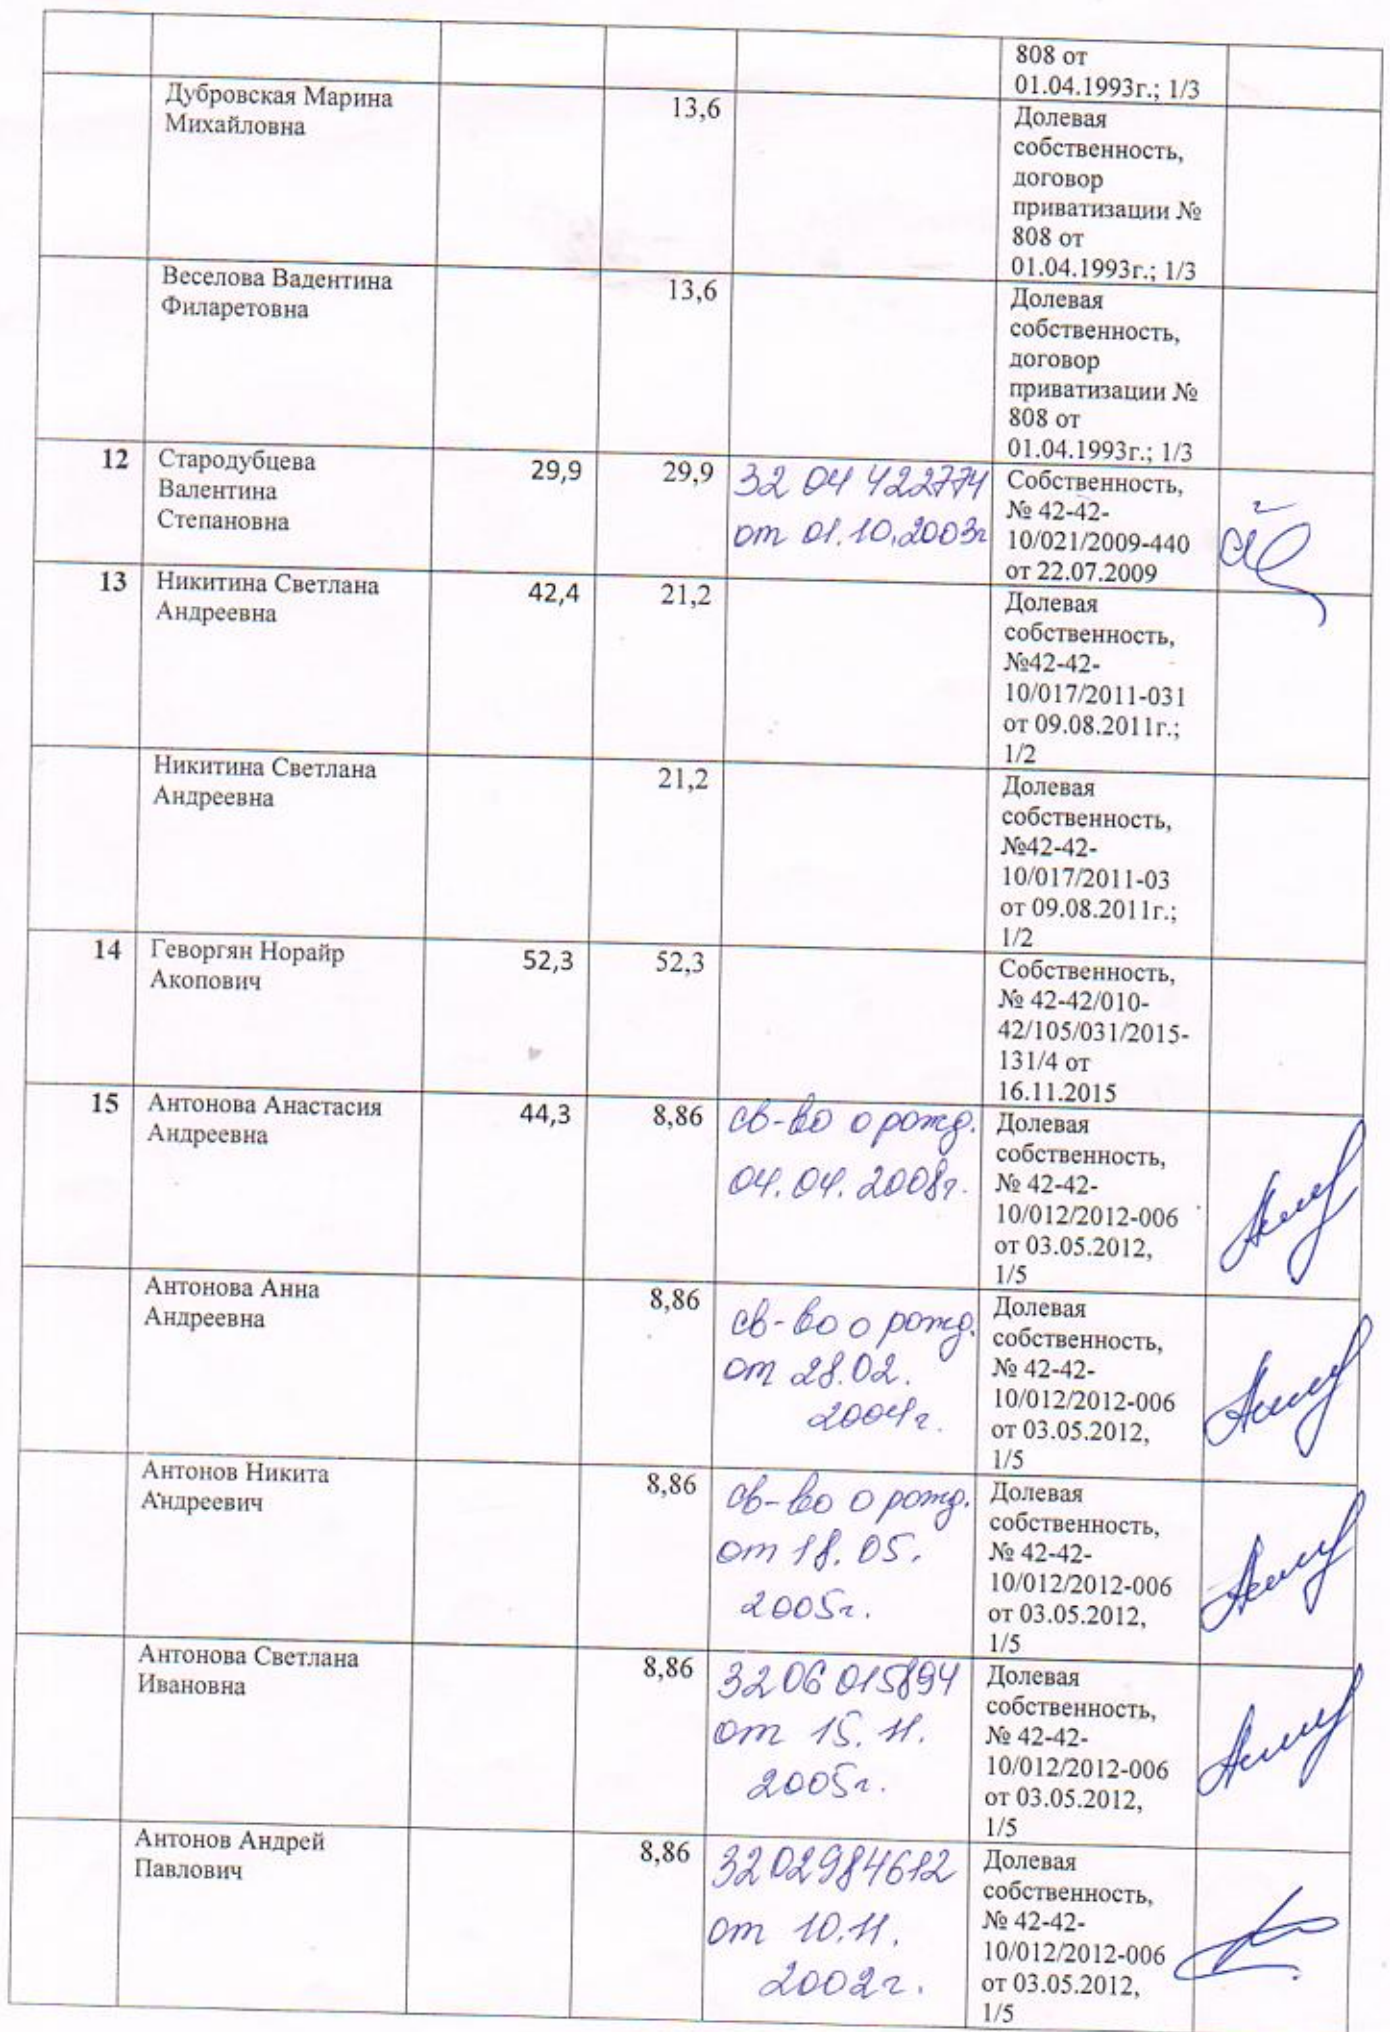 808 от
01.04.1993г.; 1/3
Дубровская Марина
Михайловна
13,6
Долевая
собственность,
договор
приватизации №
808 от
01.04.1993г.; 1/3
Веселова Вадентина
Филаретовна
13,6
Долевая
собственность,
договор
приватизации №
808 от
01.04.1993г.; 1/3
12
Стародубцева
Валентина
Степановна
29,9
29,9
32 04 422774
от 01.10.2003г
Собственность,
№ 42-42-
10/021/2009-440
от 22.07.2009
13
Никитина Светлана
Андреевна
42,4
21,2
Долевая
собственность,
№42-42-
10/017/2011-031
от 09.08.2011г.;
1/2
Никитина Светлана
Андреевна
21,2
Долевая
собственность,
№42-42-
10/017/2011-03
от 09.08.2011г.;
1/2
14
Геворгян Норайр
Акопович
52,3
52,3
Собственность,
№ 42-42/010-
42/105/031/2015-
131/4 от
16.11.2015
15
Антонова Анастасия
Андреевна
44,3
8,86
св-во о рожд.
04.04.2008г.
Долевая
собственность,
№ 42-42-
10/012/2012-006
от 03.05.2012,
1/5
Антонова Анна
Андреевна
8,86
св-во о рожд.
от 28.02.
2004г.
Долевая
собственность,
№ 42-42-
10/012/2012-006
от 03.05.2012,
1/5
Антонов Никита
Андреевич
8,86
св-во о рожд.
от 18.05.
2005г.
Долевая
собственность,
№ 42-42-
10/012/2012-006
от 03.05.2012,
1/5
Антонова Светлана
Ивановна
8,86
3206 015894
от 15.11.
2005г.
Долевая
собственность,
№ 42-42-
10/012/2012-006
от 03.05.2012,
1/5
Антонов Андрей
Павлович
8,86
3202984612
от 10.11.
2002г.
Долевая
собственность,
№ 42-42-
10/012/2012-006
от 03.05.2012,
1/5